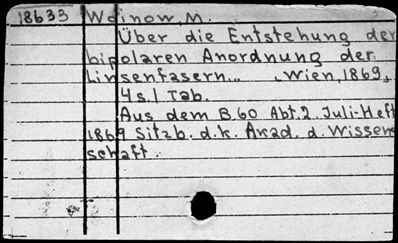 18633 Woinow, M.
Über die Entstehung der
bipolaren Anordnung der
Linsenfasern... Wien, 1869,
4 s. 1 Tab.
Aus dem B. 60 Abt. 2. Juli-Heft
1869 Sitzb. d. k. Akad. d. Wissen
schaft.